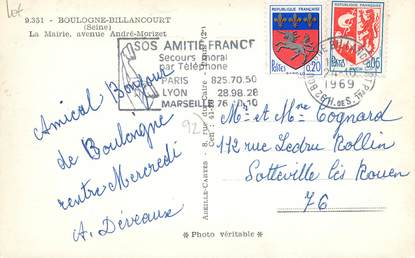 Lot
9.351 - BOULOGNE-BILLANCOURT
(Seine)
La Mairie, avenue André-Morizet
SOS AMITIÉ FRANCE
Secours moral
par Téléphone
PARIS 825.70.50
LYON 28.98.28
MARSEILLE 76.10.10
RÉPUBLIQUE FRANÇAISE
Postes 0,20
0,05
24-10
1969
92
Amical Bonjour
de Boulogne
rentre Mercredi
A. Déveaux
ABEILLE-CARTES - 8, rue du Caire - PARIS (2e)
M. et Mme Cognard
112 rue Ledru Rollin
Sotteville lès Rouen
76
* Photo véritable *